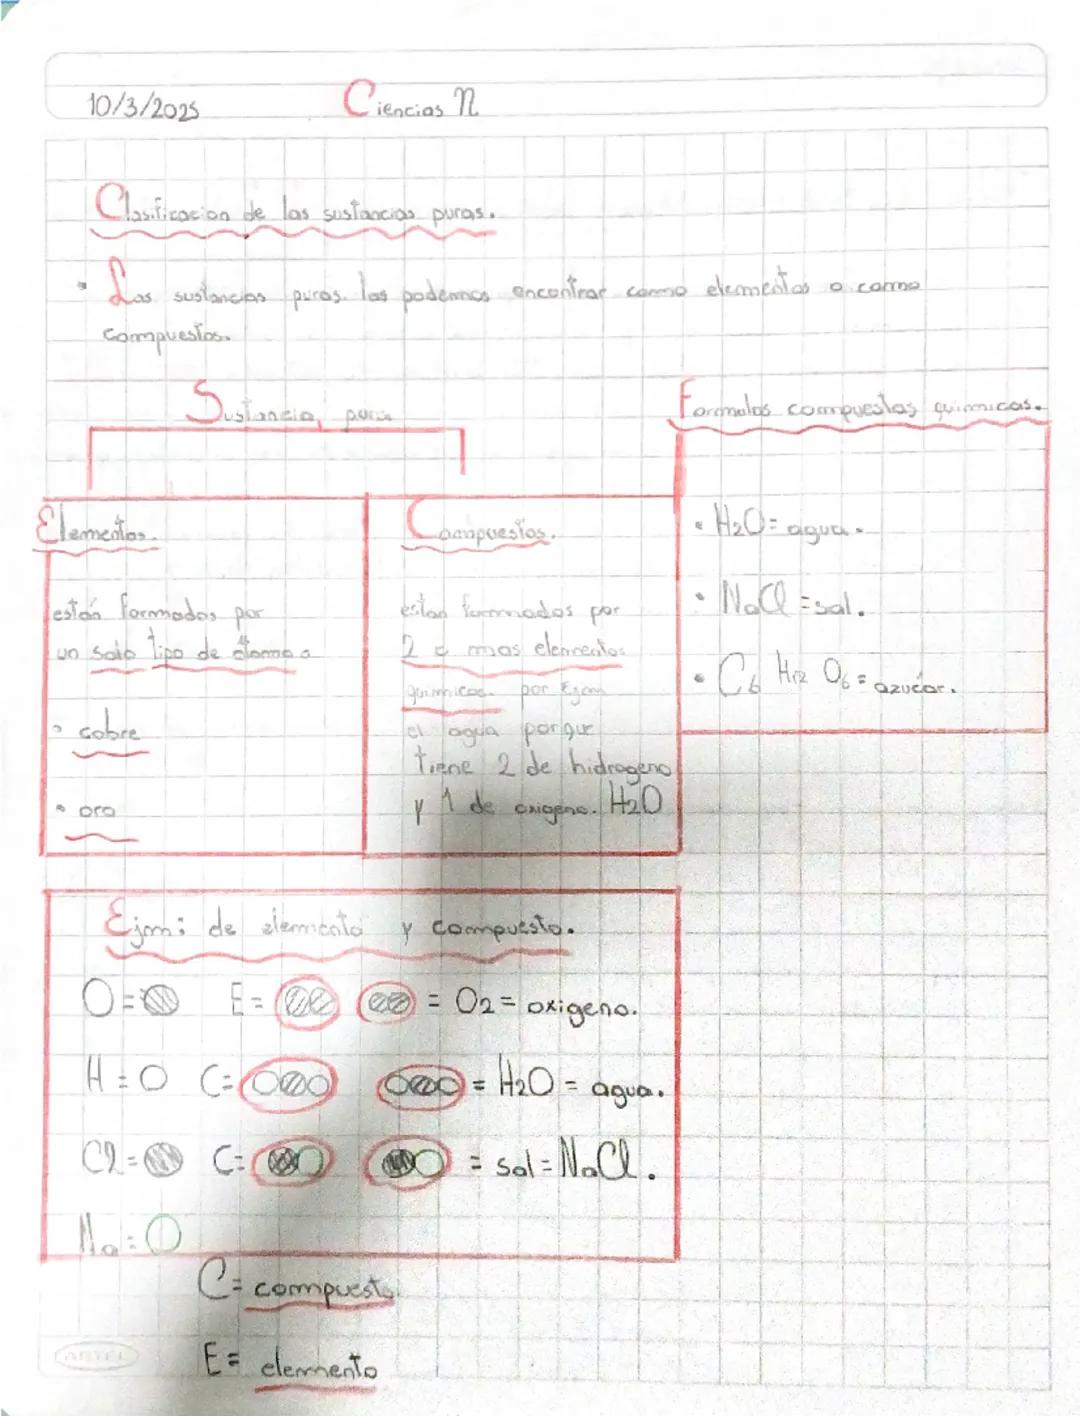 10/3/2025 Ciencias N
Clasificacion de las sustancias puras.
• Las sustancias puras las podemos encontrar como elementos o como
compuestos.
Sustancia pura
Formulas compuestas quimicas.
Elementos.
están formados por
un solo tipo de átomo
• cobre
• oro
Compuestos.
estan formados por
2 o mas elementos
quimicos. por Ejem
el agua porque
tiene 2 de hidrogeno
y 1 de oxigeno. H2O
• H2O= agua.
• NaCl = sal.
• C6 H12 O6 = azucar.
Ejm: de elemento y compuesto.
O= E= = O2 = oxigeno.
H= C= = H2O = agua.
Cl= C= = sal = NaCl.
Na=
C= compuesto
E= elemento
ARTEL